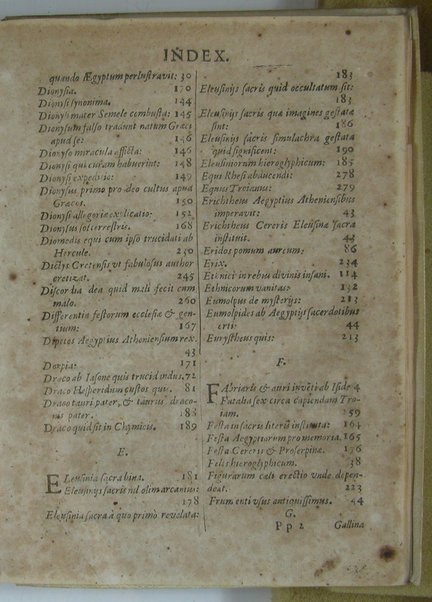 INDEX.
quando Ægyptum perlustravit: 30
Dionysia. 170
Dionysi synonima. 144
Dionysi mater Semele combusta: 145
Dionysum falso tradunt natum Græci
apud se: 146
Dionysio miracula afficta: 146
Dionysi qui curam habuerint: 148
Dionysi expeditio: 149
Dionysius primo pro deo cultus apud
Græcos. 150
Dionysi allegoriæ explicatio: 152
Dionysus soterrestris. 168
Diomedis equi cum ipso trucidati ab
Hercule. 250
Dictys Cretensis ut fabulosus author
eretizat. 245
Discordia dea quid mali fecit cum
malo. 260
Differentia festorum ecclesiæ & gen-
tium: 167
Dipetes Aegyptius Atheniensium rex.
43
Dorpia: 171
Draco ab Iasone quis trucidandus. 72
Draco Hesperidum custos quis. 81
Draco tauri pater, & taurus draco-
nis pater. 88
Draco quid sit in Chymicis. 189
E.
Eleusinia sacra bina. 181
Eleusinys sacris nil olim arcanius:
178
Eleusinia sacra à quo primò revelata:
183
Eleusinys sacris quid occultatum sit:
183
Eleusinys sacris quæ imagines gestatæ
sint: 186
Eleusinys sacris simulachra gestata
quid significent: 190
Eleusiniorum hieroglyphicum: 185
Equi Rhesi abducendi: 278
Equus Troianus: 279
Erichtheus Aegyptius Atheniensibus
imperavit: 43
Erichtheus Cereris Eleusinæ sacra
instituit. 43
Eridos pomum aureum: 86
Erix. 234
Ethnici in rebus divinis insani. 114
Ethnicorum vanitas: 132
Eumolpus de mysterijs: 213
Eumolpides ab Aegyptijs sacerdotibus
orti: 44
Eurystheus quis: 213
F.
Fabri artis & auri inventi ab Iside 4
Fatalia sex circa capiendam Tro-
iam. 259
Festa in sacris literis instituta: 164
Festa Aegyptiorum pro memoria. 165
Festa Cereris & Proserpinæ. 176
Felis hieroglyphicum. 38
Figurarum cæli erectio unde depen-
deat. 223
Frumenti usus antiquissimus. 44
G.
Pp 2 Gallina